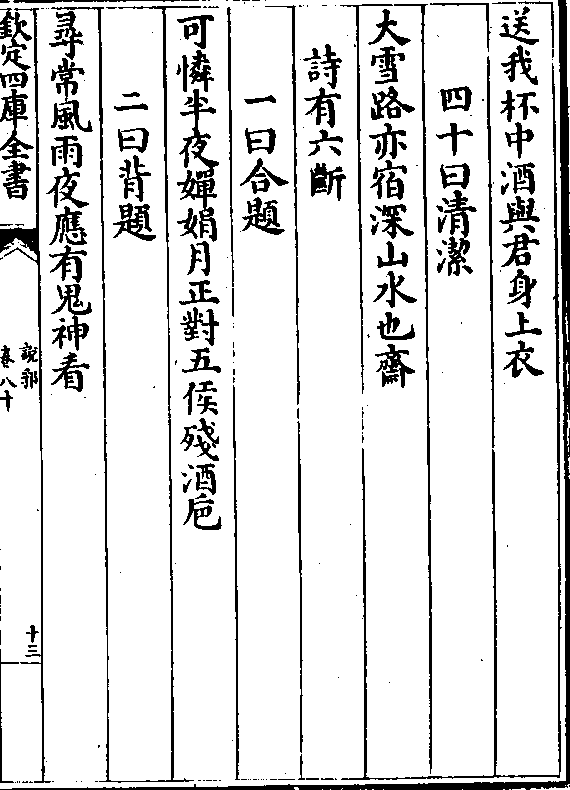 送我杯中酒與君身上衣
四十曰清潔
大雪路亦宿深山水也齋
詩有六斷
一曰合題
可憐半夜嬋娟月正對五侯殘酒卮
二曰背題
尋常風雨夜應有鬼神看
欽定四庫全書
說郛
卷八十
十三